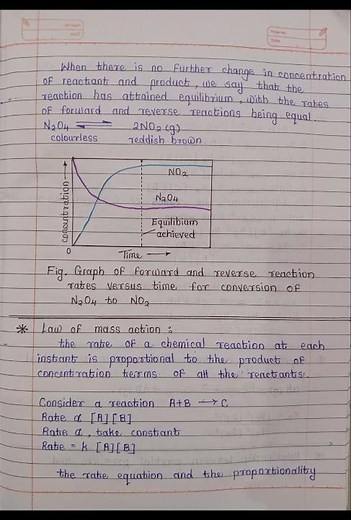 When there is no further change in concentration
of reactant and product, we say that the
reaction has attained equilibrium, with the rates
of forward and reverse reactions being equal.
N₂O₄ ⇌ 2NO₂ (g)
colourless reddish brown
NO₂
N₂O₄
Equilibium
achieved
concentration →
0
Time →
Fig. Graph of forward and reverse reaction
rates versus time for conversion of
N₂O₄ to NO₂
* Law of mass action :
the rate of a chemical reaction at each
instant is proportional to the product of
concentration terms of all the reactants.
Consider a reaction A+B → C
Rate α [A][B]
Rate α, take constant
Rate = k [A][B]
the rate equation and the proportionality